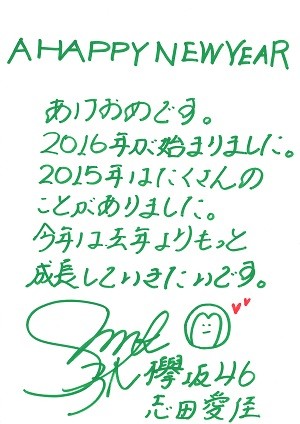 A HAPPY NEW YEAR
あけおめです。
2016年が始まりました。
2015年はたくさんの
ことがありました。
今年は去年よりもっと
成長していきたいです。
欅坂46
志田愛佳